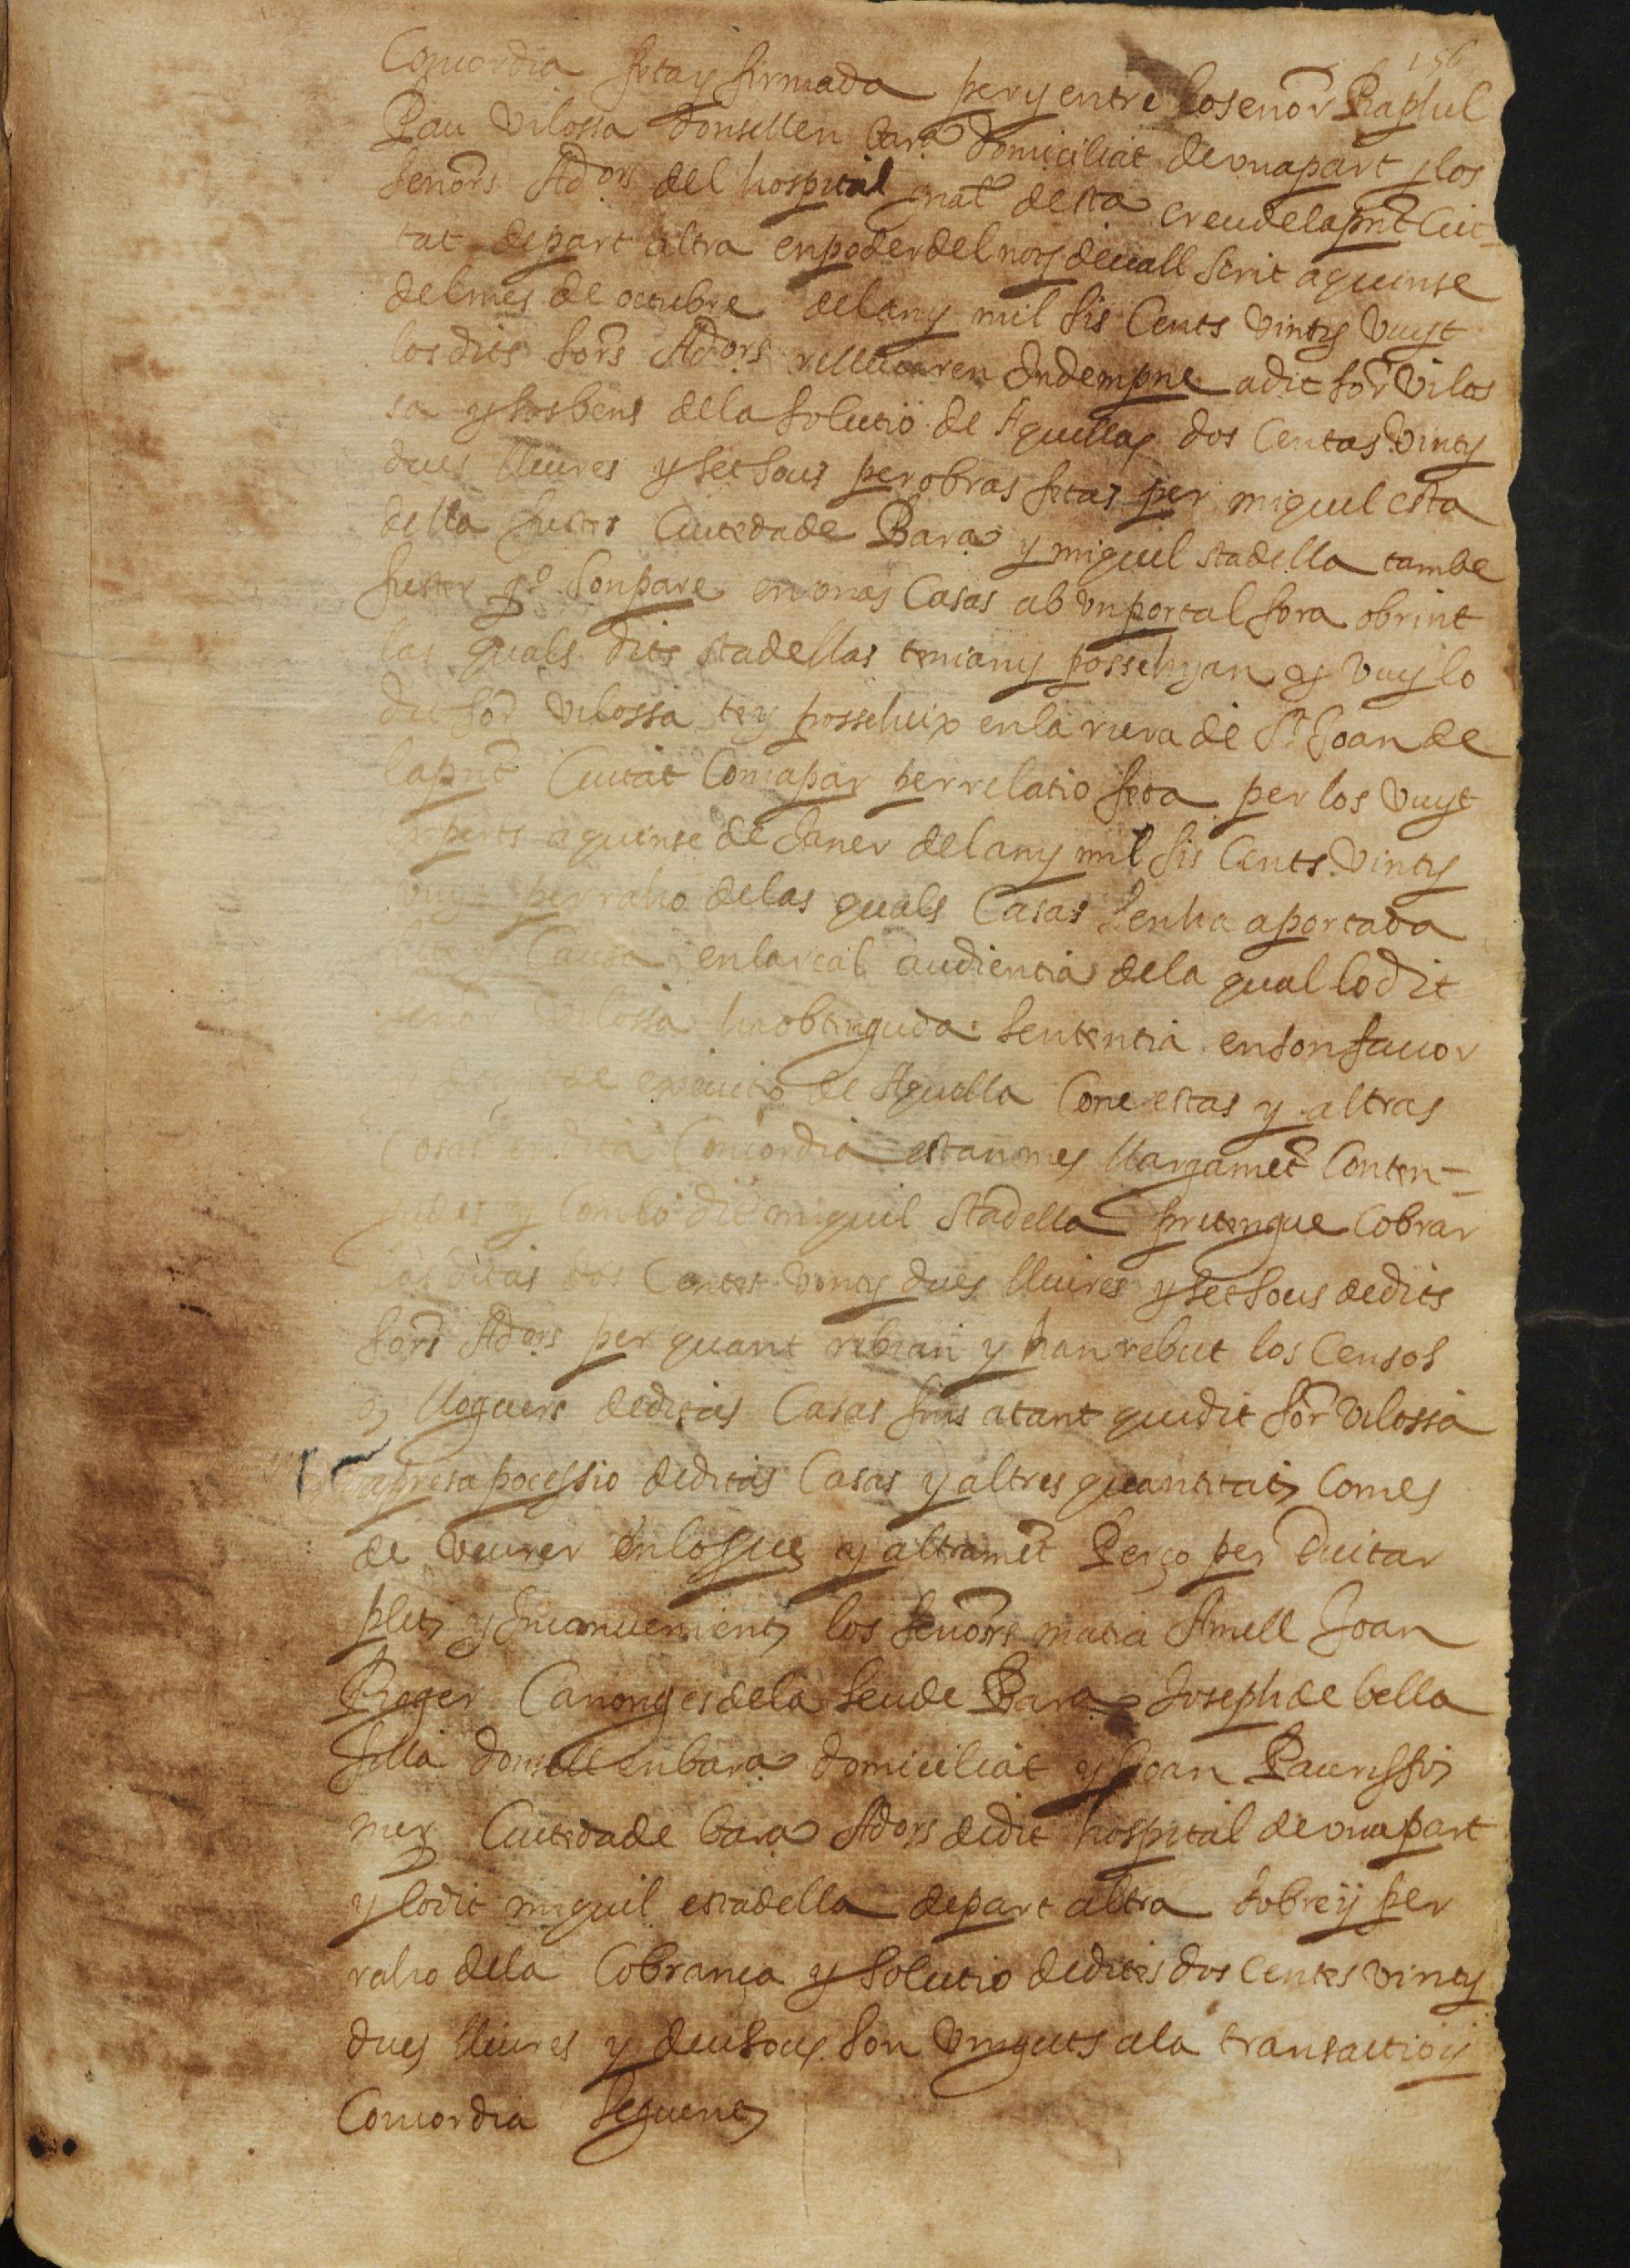 156
Concordia feta y firmada per y entre lo senor Raphel
Pau Vilossa donsell en bara domiciliat de una part y los
senors Adors del hospital gnal de sta creu de la pnt Ciu-
tat de part altra en poder del noty devall scrit a quinse
del mes de octubre del any mil sis Cents vint y vuyt
los dits sors Adors rellevaren Indempne a dit sor Vilos
sa y sos bens de la solutio de Aquellas dos Centas vint y
dues lliures y set sous per obras fetas per miquel esta
della fuster Ciutedade Bara y miquel stadella tambe
fuster qo son pare en unas Casas ab un portal fora obrint
las quals dits stadellas tenian y possehyan y vuy lo
dit sor Vilossa te y possehix en la riera de St Joan de
la pnt Ciutat Com apar per relatio feta per los vuyt
experts a quinse de Janer del any mil sis Cents vint y
vuyt per raho de las quals Casas sen ha aportada
Causa en la real audientia de la qual lo dit
senor Vilossa ha obtinguda sententia en son favor
executio de Aquella Com estas y altras
Cosas en dita Concordia estan mes llargamet Conten-
gudes y Com lo dit miquel Stadella pretengue Cobrar
las ditas dos Centes vint y dues lliures y set sous de dits
sors Adors per quant rebian y han rebut los Censos
y lloguers de ditas Casas fins a tant que dit sor Vilossa
a presa pocessio de ditas Casas y altres quantitats Com es
de veurer en lo sue y altramet Perço per Evitar
plets y Inconvenients los senors matia Amell Joan
Roger Canonges de la seu de Bara Joseph de bella
filla donsell en bara domiciliat y Joan Pau rossis
mer Ciutedade bara Adors de dit hospital de una part
y lo dit miquel estadella de part altra sobre y per
raho de la Cobrança y solutio de dites dos Centes vint y
dues lliures y deu sous son vinguts a la transactio y
Concordia seguents